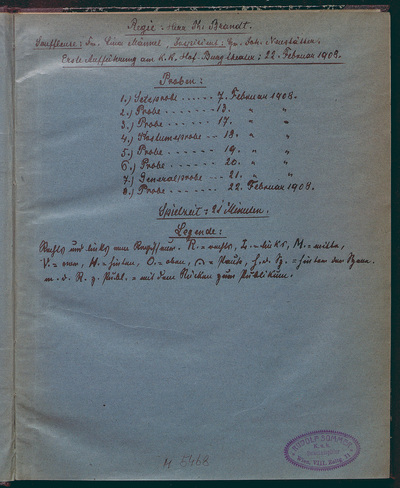 Regie: Herr Th. Brandt.
Souffleuse: Fr. Lina Mannel. Inspizient: Hr. Joh. Neustätter.
Erste Aufführung am K.K. Hof-Burgtheater: 22. Februar 1908.
Proben:
1.) Setzprobe ------ 7. Februar 1908.
2.) Probe ------ 13. " "
3.) Probe ------ 17. " "
4.) Kostümeprobe -- 18. " "
5.) Probe ------ 19. " "
6.) Probe ------ 20. " "
7.) Generalprobe --- 21. " "
8.) Probe ------ 22. Februar 1908.
Spielzeit: Minuten.
Legende:
Rechts und links vom R. = rechts, L. = links, M. = mitte,
V. = vorn, H. = hinten, O. = oben, = Pause, h. d. Sz. = hinter der Szene.
m. d. R. z. Publ. = mit dem Rücken zum Publikum.
M 5468
RUDOLF SOMMER
Wien, VIII.